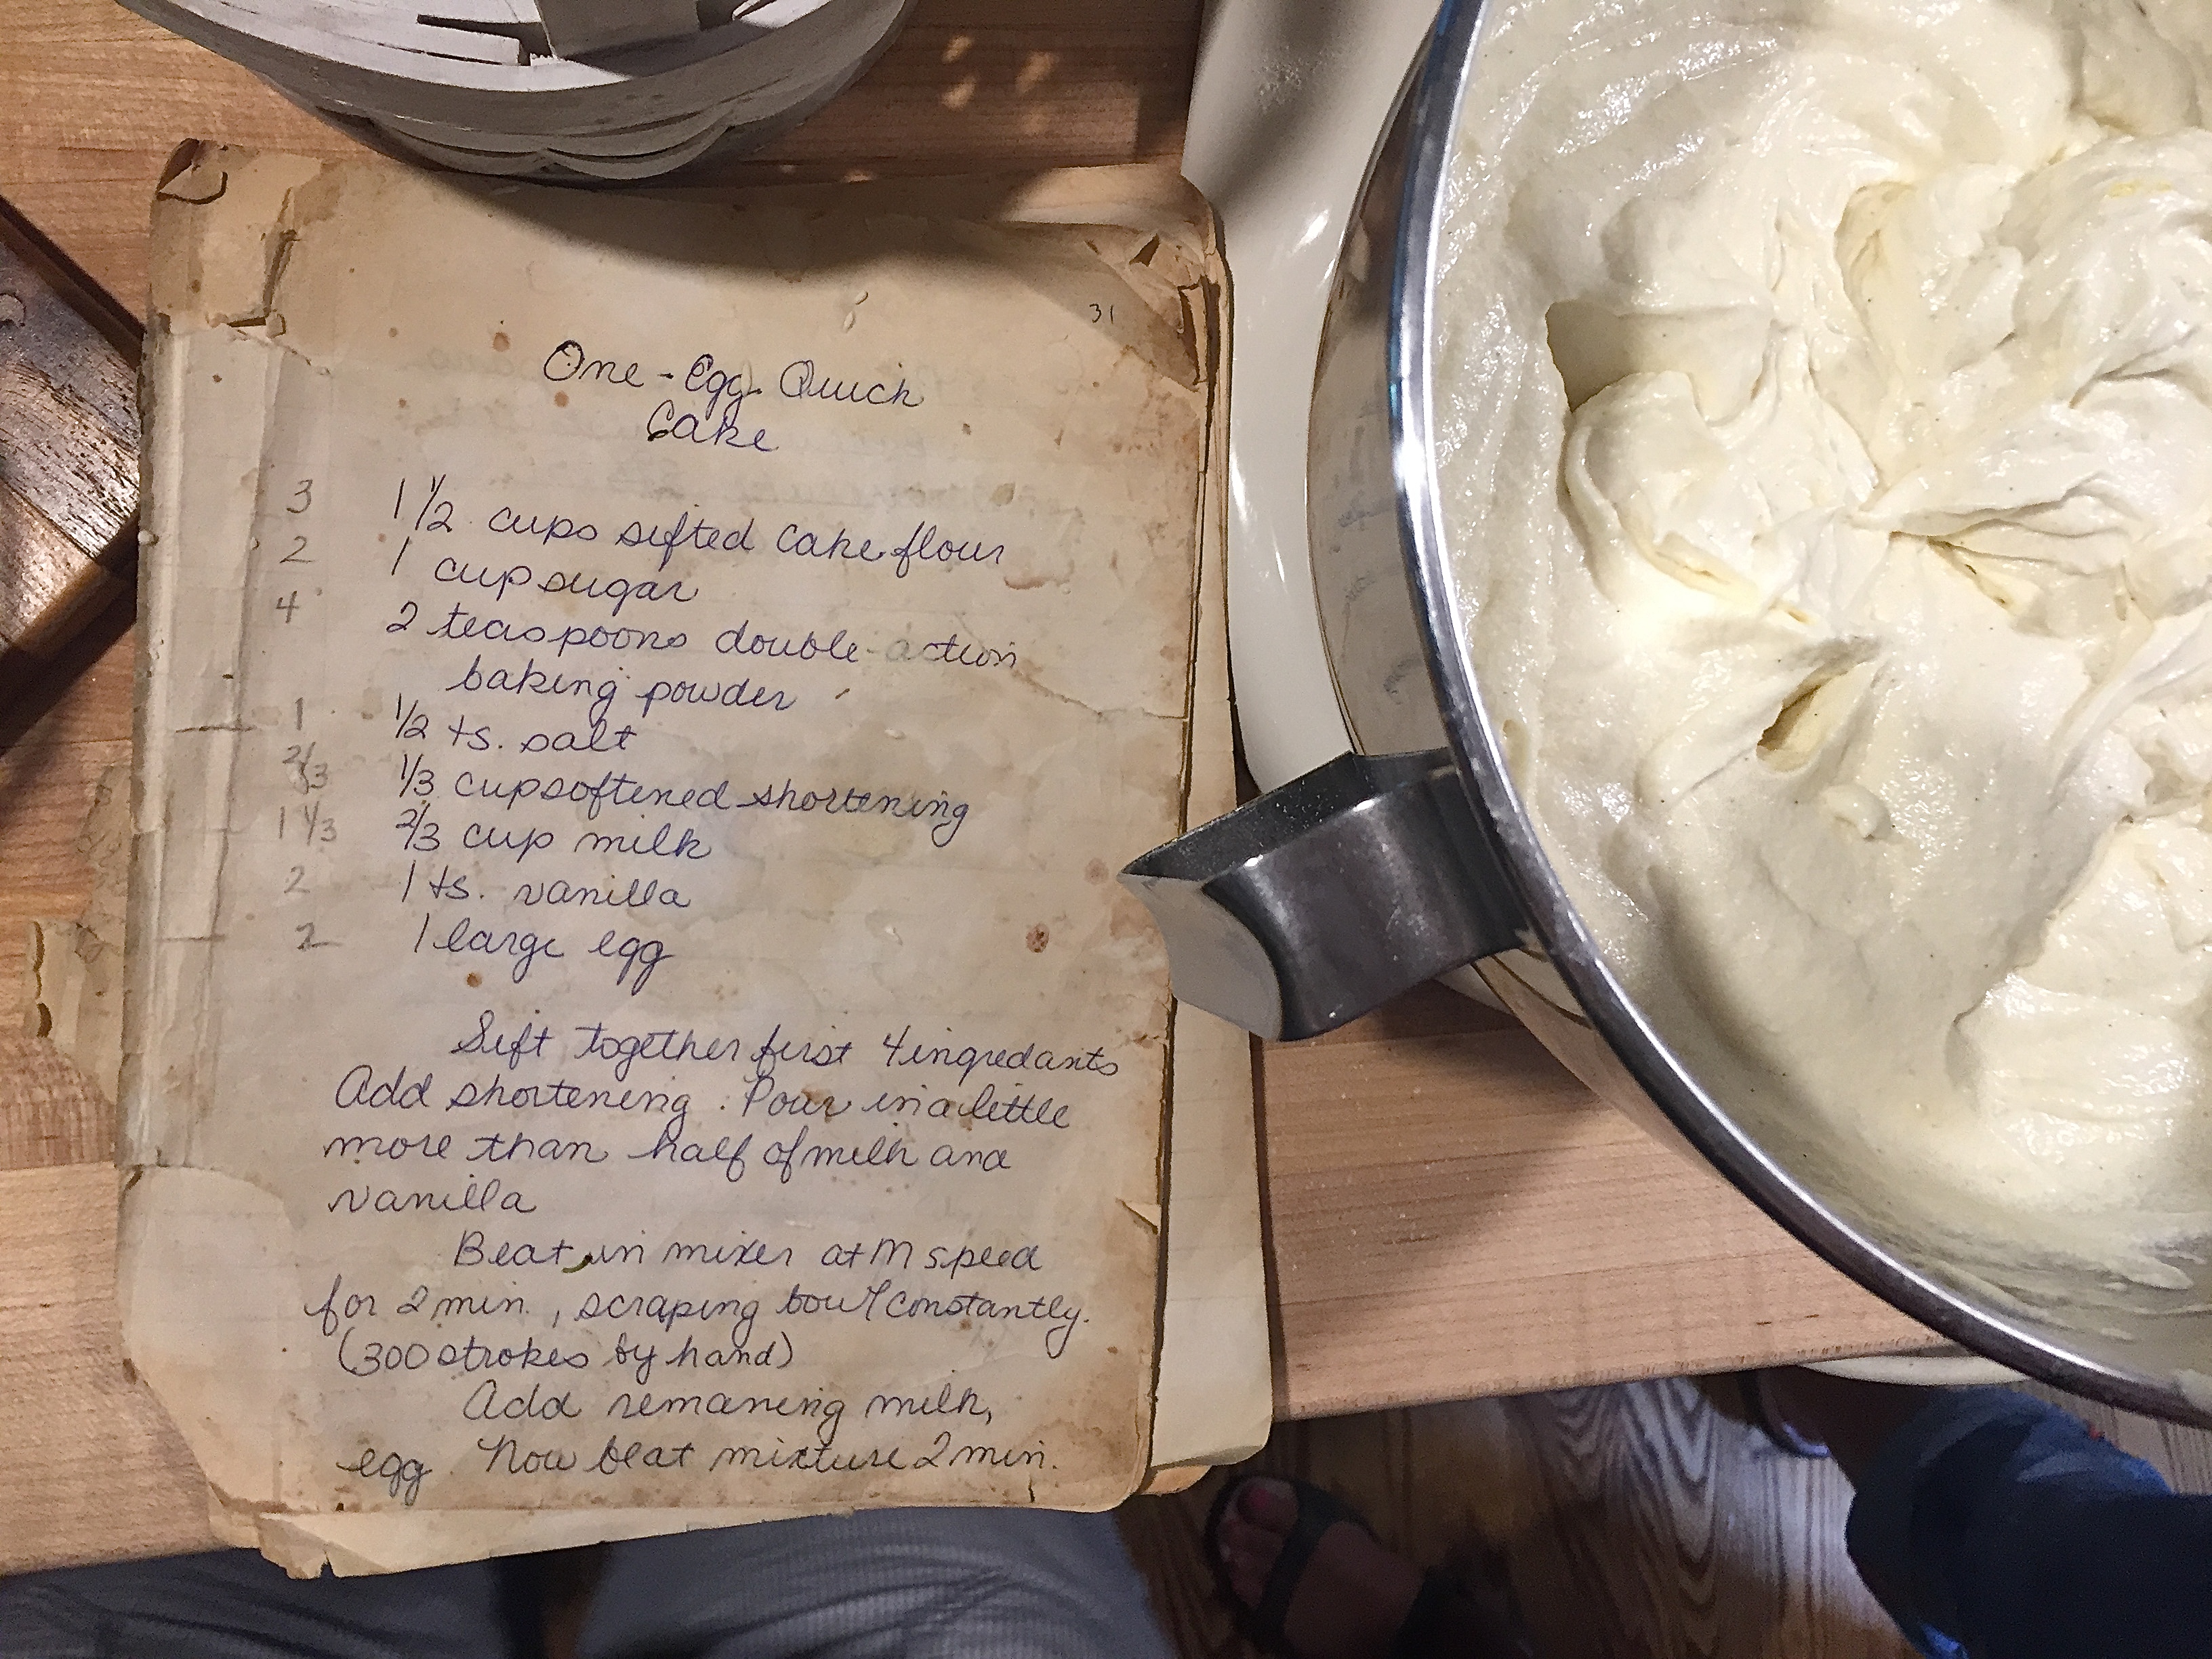 31
One-Egg Quick
Cake
3 1 1/2 cups sifted cake flour
2 1 cup sugar
4 2 teaspoons double-action
baking powder
1 1/2 ts. salt
2/3 1/3 cup softened shortening
1 1/3 2/3 cup milk
2 1 ts. vanilla
2 1 large egg
Sift together first 4 ingredants
Add shortening. Pour in a little
more than half of milk and
vanilla
Beat in mixer at M speed
for 2 min., scraping bowl constantly.
(300 strokes by hand)
Add remaning milk,
egg. Now beat mixture 2 min.